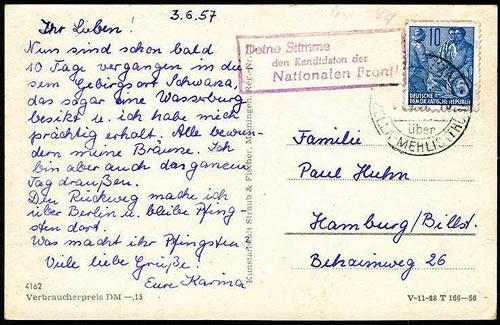 3.6.57
Ihr Lieben!
Nun sind schon bald
10 Tage vergangen in die-
sem Gebirgsort Schwarza,
das sogar eine Wasserburg
besitzt u. ich habe mich
prächtig erholt. Alle bewun-
dern meine Bräune. Ich
bin aber auch den ganzen
Tag draußen.
Den Rückweg mache ich
über Berlin u. bleibe Pfing-
sten dort.
Was macht ihr Pfingsten
Viele liebe Grüße!
Eure Karina
4162
Verbraucherpreis DM —,15
Kunstanstalt Straub & Fischer, Meiningen, Reg.-Nr.
Deine Stimme
den Kandidaten der
Nationalen Front!
10
DEUTSCHE
DEMOKRATISCHE REPUBLIK
über
ZELLA-MEHLIS
Familie
Paul Huhn
Hamburg/Billst.
Bekaimweg 26
V-11-28 T 166—56